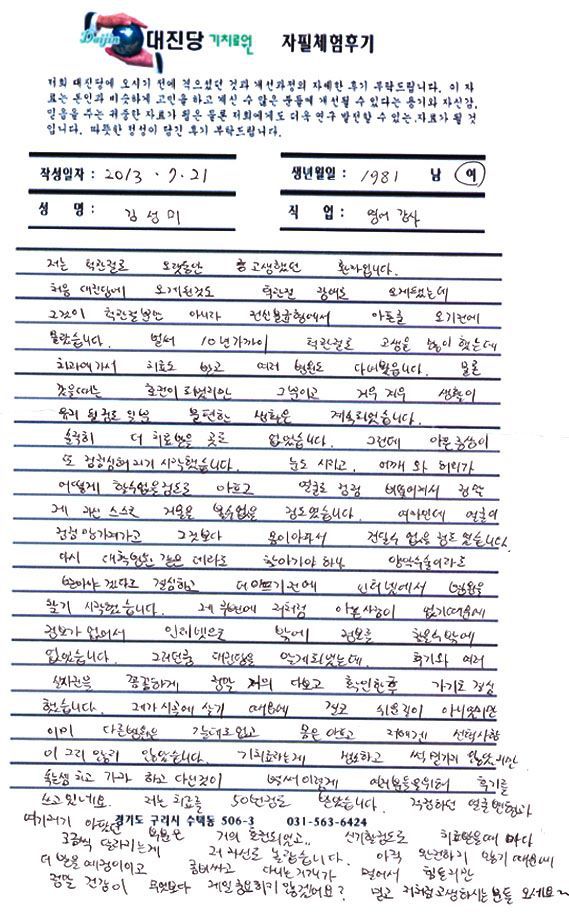 Daijin 대진당 기치료원 자필체험후기
저희 대진당에 오시기 전에 겪으셨던 것과 개선과정의 자세한 후기 부탁드립니다. 이 자
료는 본인과 비슷하게 고민을 하고 계신 수 많은 분들께 개선될 수 있다는 용기와 자신감,
믿음을 주는 귀중한 자료가 됨은 물론 저희에게도 더욱 연구 발전할 수 있는 자료가 될 것
입니다. 따뜻한 정성이 담긴 후기 부탁드립니다.
작성일자 : 2013 . 7 . 21 생년월일 : 1981 남 여
성 명 : 김성미 직 업 : 영어 강사
저는 턱관절로 오랫동안 고생했던 환자입니다.
처음 대진당에 오게된것도 턱관절 장애로 오게됐는데
그것이 턱관절뿐만 아니라 전신불균형에서 아픈줄 오기전에
몰랐습니다. 벌써 10년가까이 턱관절로 고생을 많이 했는데
치과에가서 치료도 받고 여러 병원도 다녀봤습니다. 물론
갔을때는 호전이 되었지만 그뿐이고 겨우겨우 생활이
유지 될정도일뿐 불편한 생활은 계속되었습니다.
솔직히 더 치료받을 곳도 없었습니다. 그런데 아픈증상이
또 점점심해지기 시작했습니다. 눈도 시리고, 어깨와 허리가
어떻게 할수없을정도로 아프고 얼굴도 점점 비뚤어져서 정말
제 자신 스스로 거울을 볼수없을 정도였습니다. 여자인데 얼굴이
점점 망가져가고 그것보다 몸이아파서 견딜수 없을 정도였습니다.
다시 대학병원 같은 데라도 찾아가야 하나 양악수술이라도
받아야 겠다고 결심하고 더아프기전에 인터넷에서 병원을
찾기 시작했습니다. 제 주변에 저처럼 아픈사람이 없기때문에
정보가 없어서 인터넷으로 밖에 정보를 찾을수밖에
없었습니다. 그러던중 대진당을 알게되었는데, 후기와 여러
사진을 꼼꼼하게 정말 거의 다보고 확인한후 가기로 결심
했습니다. 제가 시골에 살기 때문에 결코 쉬운길이 아니었지만
이미 다른병원은 갈데도없고 몸은 아프고 저에게 선택사항
이 그리 많지 않았습니다. 기치료라는게 생소하고 썩 믿기지 않았지만
속는셈 치고 가자 하고 다닌것이 벌써이렇게 여러분들을위해 후기를
쓰고 있네요. 저는 치료를 50번정도 받았습니다. 걱정하던 얼굴변형과
경기도 구리시 수택동 506-3 031-563-6424
여기저기 아팠던 부분은 거의 호전되었고.. 신기할정도로 치료받을때 마다
조금씩 달라지는게 저 자신도 놀랐습니다. 아직 완전하지 않기 때문에
더 받을 예정이이고 다니는거리가 멀어서 힘들지만
정말 건강이 무엇보다 제일 중요하지 않겠어요? 믿고 저처럼고생하시는 분들 오세요~